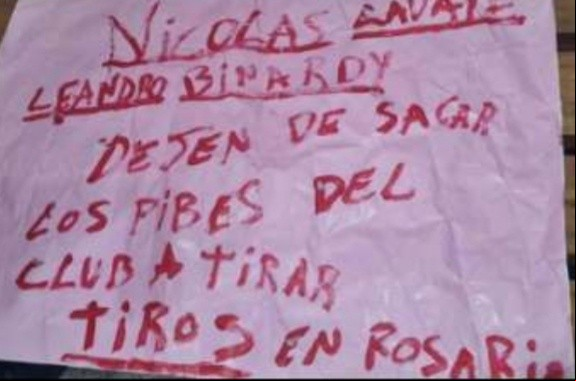 NICOLAS
LEANDRO BINARDY
DEJEN DE SACAR
LOS PIBES DEL
CLUB A TIRAR
TIROS EN ROSARIO